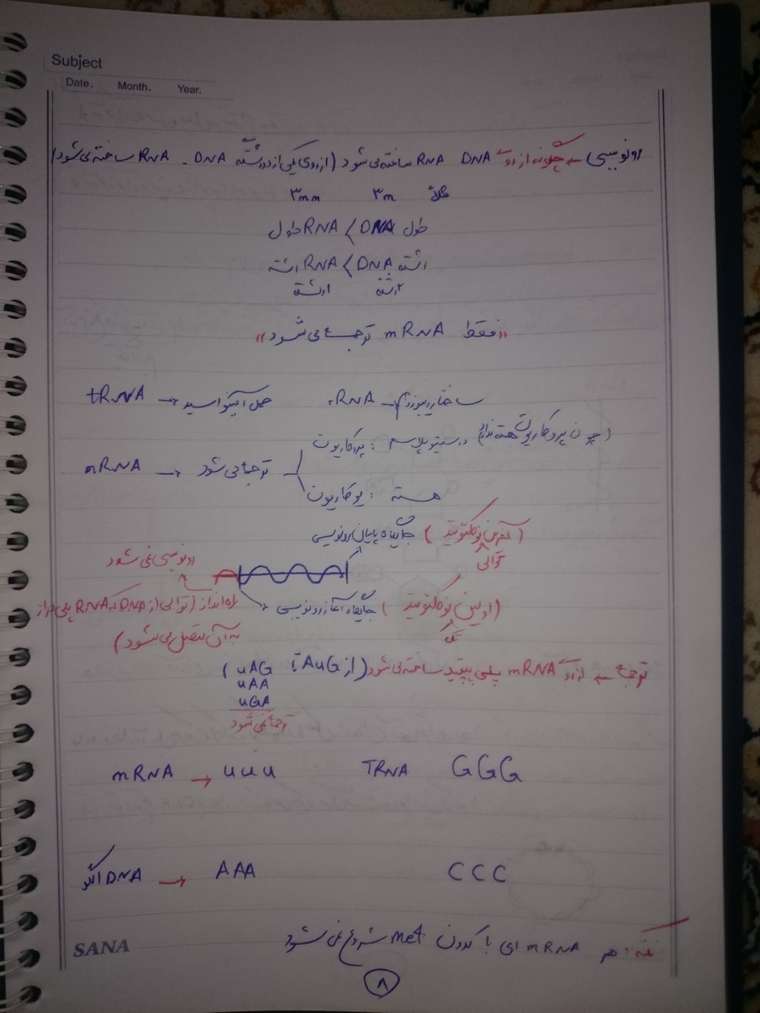 Subject
Date. Month. Year.
رونویسی → چگونه از روی DNA RNA ساخته می شود (از روی یکی از دو رشته DNA - RNA ساخته می شود)
مثلا ۳m ۳mm
طول DNA > RNA طول
رشته DNA > RNA رشته
۲رشته ۱رشته
«فقط mRNA ترجمه می شود»
tRNA → حمل آمینواسید rRNA → ساختار ریبوزوم
mRNA → ترجمه می شود
پروکاریوت : در سیتوپلاسم (چون پروکاریوت هسته ندارد)
یوکاریوت : هسته
جایگاه پایان رونویسی (آخرین نوکلئوتید)
توالی
رونویسی نمی شود
جایگاه آغاز رونویسی (اولین نوکلئوتید)
تک
راه انداز (توالی از DNA که RNA پلی مراز
به آن متصل می شود)
ترجمه → از روی mRNA پلی پپتید ساخته می شود (از AuG تا uAG)
uAA
uGA
ترجمه نمی شود
mRNA → uuu TRNA GGG
الگو DNA → AAA CCC
نکته: هر mRNA ای با کدون met شروع نمی شود
SANA
۸